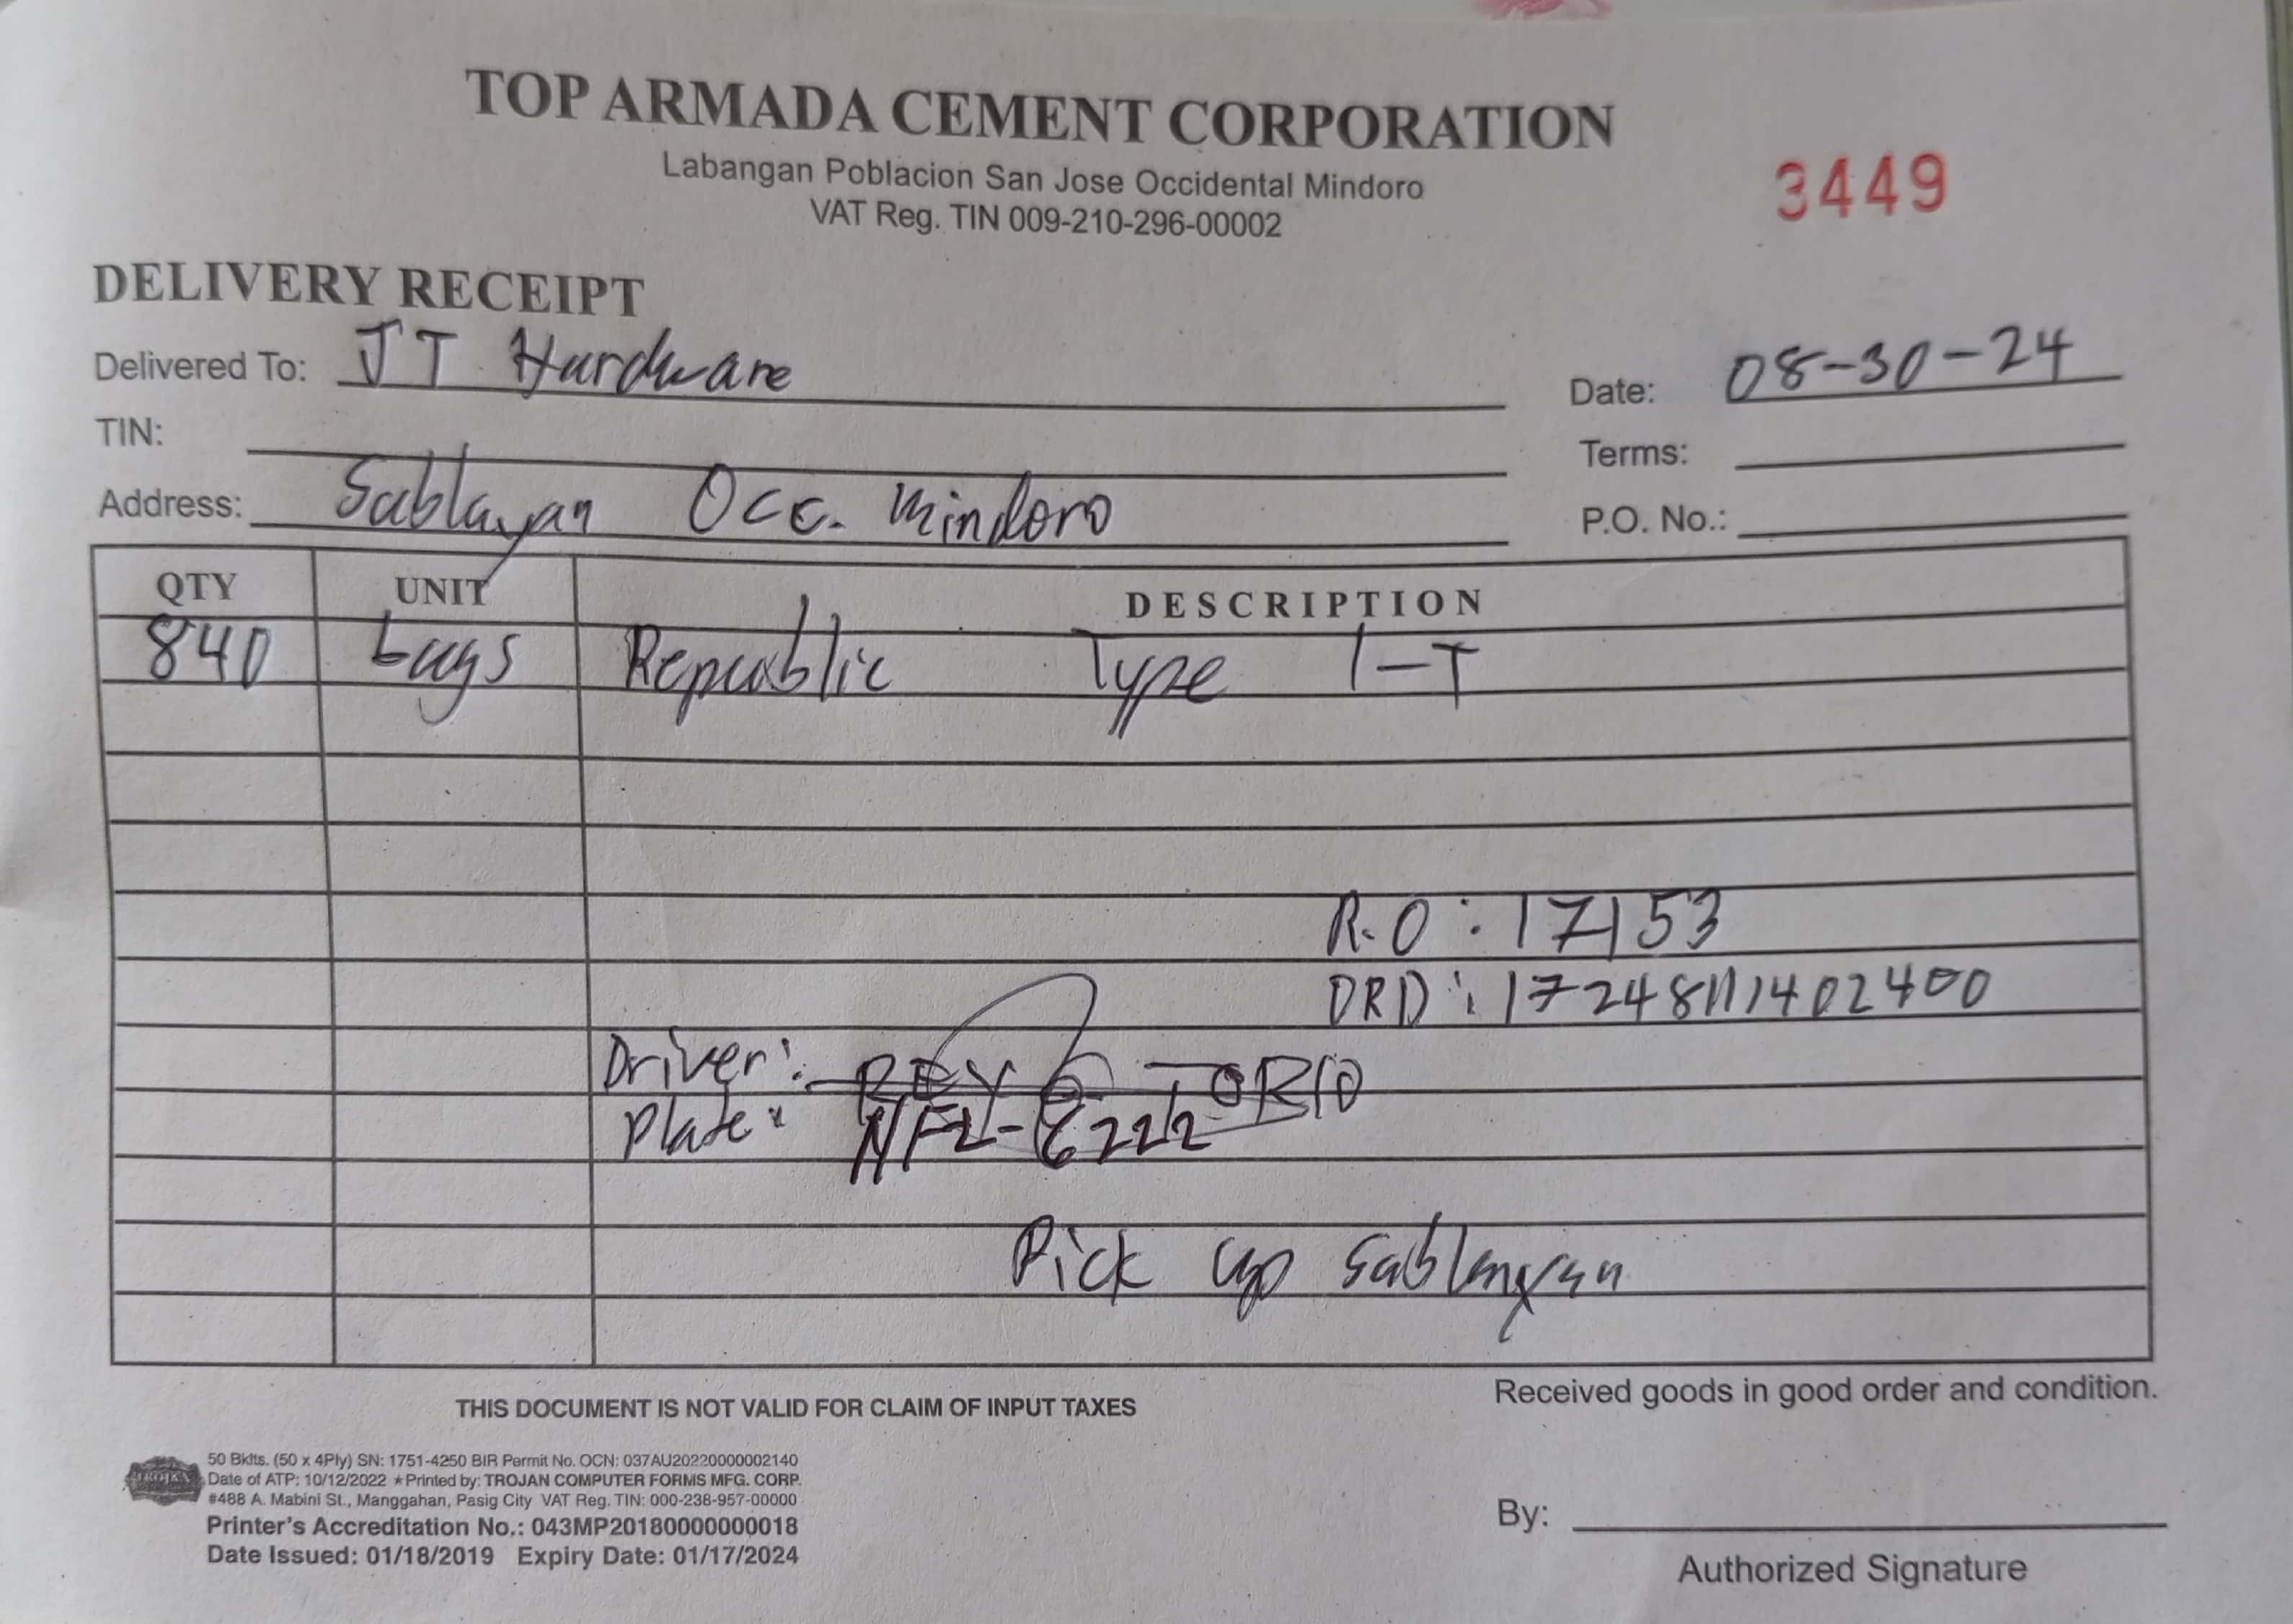 TOP ARMADA CEMENT CORPORATION
Labangan Poblacion San Jose Occidental Mindoro
VAT Reg. TIN 009-210-296-00002
3449
DELIVERY RECEIPT
Delivered To: JT Hardware
Date: 08-30-24
TIN:
Terms:
Address: Sablayan Occ. Mindoro
P.O. No.:
QTY UNIT DESCRIPTION
840 bags Republic Type 1-T
R.O: 17153
DRD: 1724811402400
Driver: REY TORIO
Plate: NFL-6222
Pick up Sablayan
THIS DOCUMENT IS NOT VALID FOR CLAIM OF INPUT TAXES
Received goods in good order and condition.
TROJAN
50 Bklts. (50 x 4Ply) SN: 1751-4250 BIR Permit No. OCN: 037AU20220000002140
Date of ATP: 10/12/2022 ★Printed by: TROJAN COMPUTER FORMS MFG. CORP.
#488 A. Mabini St., Manggahan, Pasig City VAT Reg. TIN: 000-238-957-00000
Printer's Accreditation No.: 043MP20180000000018
Date Issued: 01/18/2019 Expiry Date: 01/17/2024
By:
Authorized Signature